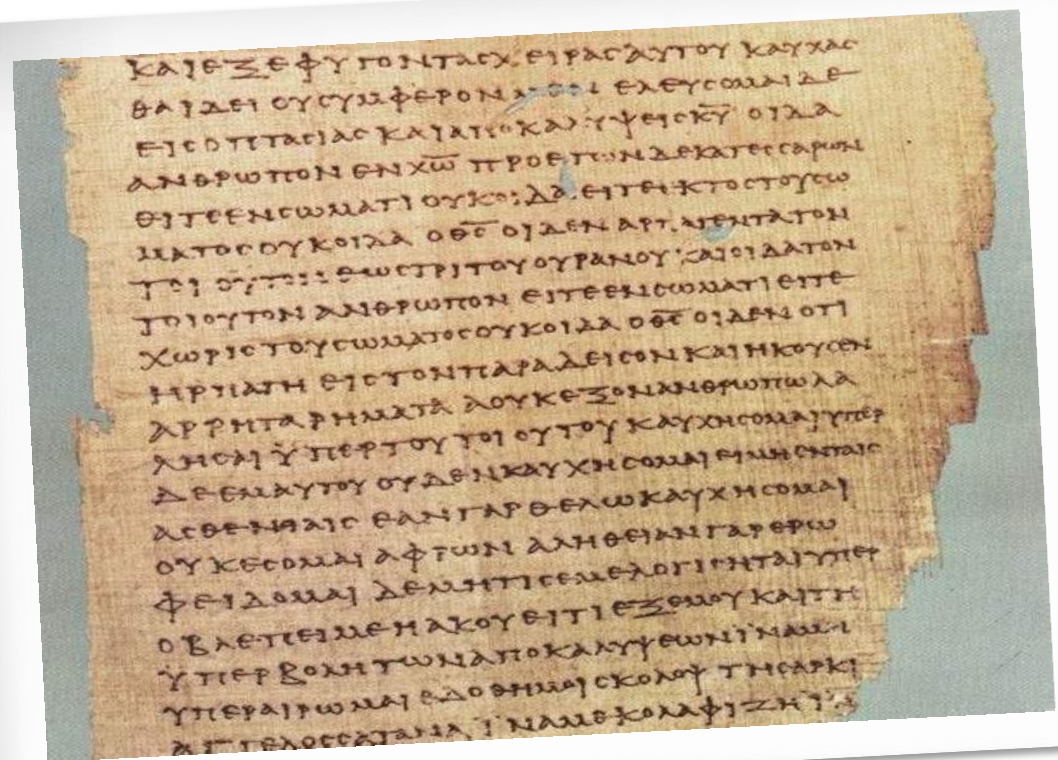 ΚΑΙ ΕΞΕΦΥΓΟΝ ΤΑΣ ΧΕΙΡΑΣ ΑΥΤΟΥ ΚΑΥΧΑΣ
ΘΑΙ ΔΕΙ ΟΥ ΣΥΜΦΕΡΟΝ ΕΛΕΥΣΟΜΑΙ ΔΕ
ΕΙΣ ΟΠΤΑΣΙΑΣ ΚΑΙ ΑΠΟΚΑΛΥΨΕΙΣ Κ̅Υ̅ ΟΙΔΑ
ΑΝΘΡΩΠΟΝ ΕΝ Χ̅Ω̅ ΠΡΟ ΕΤΩΝ ΔΕΚΑΤΕΣΣΑΡΩΝ
ΕΙΤΕ ΕΝ ΣΩΜΑΤΙ ΟΥΚ ΟΙΔΑ ΕΙΤΕ ΕΚΤΟΣ ΤΟΥ ΣΩ
ΜΑΤΟΣ ΟΥΚ ΟΙΔΑ Ο Θ̅Σ̅ ΟΙΔΕΝ ΑΡΠΑΓΕΝΤΑ ΤΟΝ
ΤΟΙΟΥΤΟΝ ΕΩΣ ΤΡΙΤΟΥ ΟΥΡΑΝΟΥ ΚΑΙ ΟΙΔΑ ΤΟΝ
ΤΟΙΟΥΤΟΝ ΑΝΘΡΩΠΟΝ ΕΙΤΕ ΕΝ ΣΩΜΑΤΙ ΕΙΤΕ
ΧΩΡΙΣ ΤΟΥ ΣΩΜΑΤΟΣ ΟΥΚ ΟΙΔΑ Ο Θ̅Σ̅ ΟΙΔΕΝ ΟΤΙ
ΗΡΠΑΓΗ ΕΙΣ ΤΟΝ ΠΑΡΑΔΕΙΣΟΝ ΚΑΙ ΗΚΟΥΣΕΝ
ΑΡΡΗΤΑ ΡΗΜΑΤΑ Α ΟΥΚ ΕΞΟΝ ΑΝΘΡΩΠΩ ΛΑ
ΛΗΣΑΙ ΫΠΕΡ ΤΟΥ ΤΟΙΟΥΤΟΥ ΚΑΥΧΗΣΟΜΑΙ ΥΠΕΡ
ΔΕ ΕΜΑΥΤΟΥ ΟΥΔΕΝ ΚΑΥΧΗΣΟΜΑΙ ΕΙ ΜΗ ΕΝ ΤΑΙΣ
ΑΣΘΕΝΕΙΑΙΣ ΕΑΝ ΓΑΡ ΘΕΛΩ ΚΑΥΧΗΣΟΜΑΙ
ΟΥΚ ΕΣΟΜΑΙ ΑΦΡΩΝ ΑΛΗΘΕΙΑΝ ΓΑΡ ΕΡΩ
ΦΕΙΔΟΜΑΙ ΔΕ ΜΗ ΤΙΣ ΕΜΕ ΛΟΓΙΣΗΤΑΙ ΥΠΕΡ
Ο ΒΛΕΠΕΙ ΜΕ Η ΑΚΟΥΕΙ ΤΙ ΕΞ ΕΜΟΥ ΚΑΙ ΤΗ
ΫΠΕΡΒΟΛΗ ΤΩΝ ΑΠΟΚΑΛΥΨΕΩΝ ΪΝΑ ΜΗ
ΥΠΕΡΑΙΡΩΜΑΙ ΕΔΟΘΗ ΜΟΙ ΣΚΟΛΟΨ ΤΗ ΣΑΡΚΙ
ΑΓΓΕΛΟΣ ΣΑΤΑΝΑ ΪΝΑ ΜΕ ΚΟΛΑΦΙΖΗ